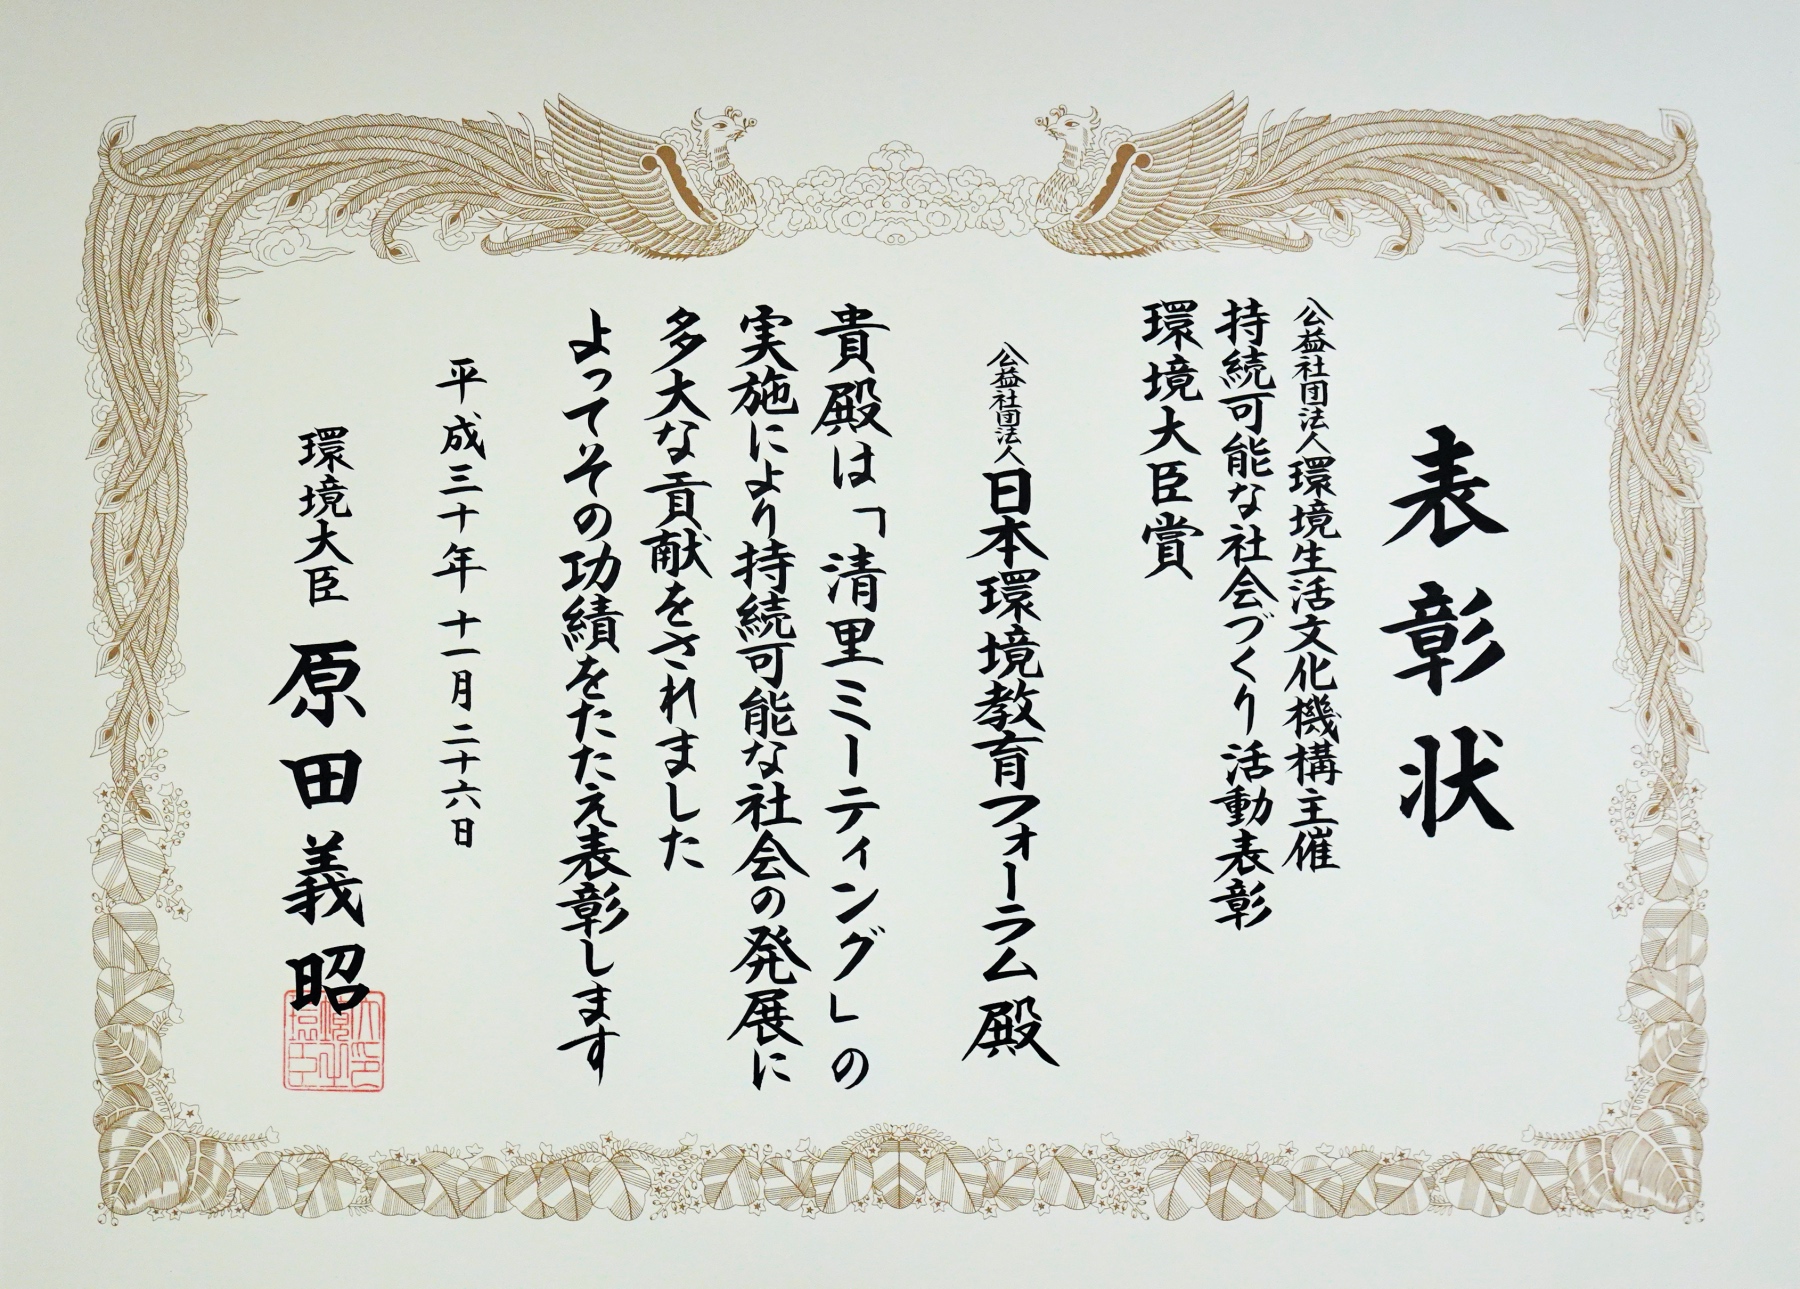 表彰状
公益社団法人環境生活文化機構主催
持続可能な社会づくり活動表彰
環境大臣賞
公益社団法人日本環境教育フォーラム殿
貴殿は「清里ミーティング」の
実施により持続可能な社会の発展に
多大な貢献をされました
よってその功績をたたえ表彰します
平成三十年十一月二十六日
環境大臣 原田義昭